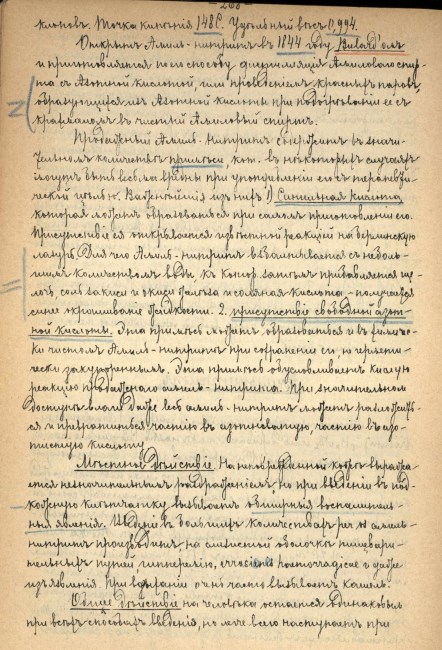 268
клоповъ. Точка кипѣнія 148С. Удѣльный вѣсъ 0,994.
Открытъ Амилъ-нитритъ въ 1844 году Balard'омъ
и приготовляется по его способу дистилляціи Амиловаго спир-
та съ Азотной кислотой, или проведеніемъ красныхъ паровъ,
образующихся изъ Азотной кислоты при подогрѣваніи ее съ
крахмаломъ въ чистый Амиловый спиртъ.
Продажный Амилъ-нитритъ содержитъ въ значи-
тельномъ количествѣ примѣси, кот. въ нѣкоторыхъ случаяхъ
могутъ быть весьма вредны при употребленіи его съ терапевти-
ческой цѣлью. Важнѣйшія изъ нихъ 1) Синильная кислота,
которая можетъ образоваться при самомъ приготовленіи его.
Присутствіе ея открывается извѣстной реакціей на берлинскую
лазурь. Для чего Амилъ-нитритъ взбалтывается съ неболь-
шимъ количествомъ воды къ котор. затѣмъ прибавляется ще-
лочь, соль закиси и окиси желѣза и соляная кислота - получается
синее окрашиваніе жидкости. 2. присутствіе свободной азот-
ной кислоты. Эта примѣсь можетъ образоваться и въ химичес-
ки чистомъ Амилъ-нитритѣ при сохраненіи его, не гермети-
чески закупореннымъ. Эта примѣсь обусловливаетъ кислую
реакцію продажнаго амилъ-нитрита. При значительномъ
доступѣ влаги даже весь амилъ-нитритъ можетъ разложить-
ся и превратиться частію въ азотноватую, частію въ азо-
тистую кислоту.
Мѣстное дѣйствіе. На неповрежденной кожѣ выража-
ется незначительнымъ раздраженіемъ, но при введеніи въ под-
кожную клѣтчатку вызываетъ обширныя воспалитель-
ныя явленія. Введенъ въ большихъ количествахъ per os амилъ-
нитритъ производитъ на слизистой оболочкѣ пищева-
рительныхъ путей гиперемію, erosiones haemorrhagicae и даже
изъязвленія. При вдыханіи очно часто вызываетъ кашель.
Общее дѣйствіе на человѣка остается одинаковымъ
при всѣхъ способахъ введенія, но легче всего наступаетъ при